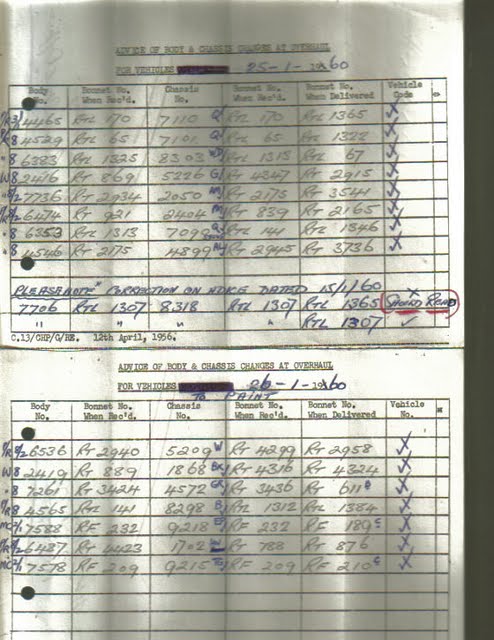 ADVICE OF BODY & CHASSIS CHANGES AT OVERHAUL
FOR VEHICLES 25-1-1960
Body No. Bonnet No. When Rec'd. Chassis No. Bonnet No. When Rec'd. Bonnet No. When Delivered Vehicle Code
4465 RTL 170 7110 RTL 170 RTL 1365 X
8 4529 RTL 65 7101 RTL 65 RTL 1322 X
8 6383 RTL 1325 8303 RTL 1313 RTL 67 X
W8 2416 RT 869 5226 RT 4347 RT 2915 X
7736 RT 2934 2050 RT 2175 RT 3541 X
6474 RT 921 2404 RT 839 RT 2165 X
8 6353 RTL 1313 7099 RTL 141 RTL 1346 X
8 4546 RT 2175 4899 RT 2945 RT 3736 X
PLEASE NOTE CORRECTION ON DATED 15/1/60 X
7706 RTL 1307 8318 RTL 1307 RTL 1365 SHOULD READ
" " " " RTL 1307 ✓
C.13/CHP/G/RE. 12th April, 1956.
ADVICE OF BODY & CHASSIS CHANGES AT OVERHAUL
FOR VEHICLES 26-1-1960
TO PAINT
Body No. Bonnet No. When Rec'd. Chassis No. Bonnet No. When Rec'd. Bonnet No. When Delivered Vehicle No.
6536 RT 2940 5209 W RT 4299 RT 2958 X
W8 2419 RT 889 1868 RT 4316 RT 4324 X
8 7261 RT 3424 4572 RT 3436 RT 611 X
8 4565 RTL 141 8298 RTL 1312 RTL 1384 X
7588 RF 232 9218 RF 232 RF 189 C X
6437 RT 4423 1702 RT 788 RT 876 X
7578 RF 209 9215 RF 209 RF 210 C X